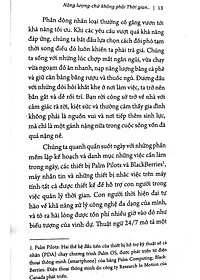 Năng lượng-chứ không phải Thời gian... | 13
Phần đông nhân loại thường cố gắng vươn tới
khả năng tối ưu. Khi các yêu cầu vượt quá khả năng
đáp ứng, chúng ta bắt đầu lựa chọn cách đối phó tạm
thời song điều đó luôn khiến ta phải trả giá. Chúng ta
sống với những bữa ăn vội vàng, nạp nhiên liệu bằng
các loại đồ ăn nhanh, nạp năng lượng bằng cà phê
và giữ cân bằng bằng rượu và thuốc ngủ. Đương đầu
với những đòi hỏi khắt khe ở nơi làm việc, ta trở nên
bẳn gắt và dễ nổi nóng. Bạn rời công sở trở về nhà
trong trạng thái kiệt sức và coi gia đình mình không
phải là nguồn vui và nơi tiếp thêm sinh lực, mà
chỉ là một gánh nặng nữa trong cuộc sống vốn đã quá
nặng nề.
Chúng ta quanh quẩn suốt ngày với những phần
mềm lập kế hoạch và danh mục những công việc cần
làm trong ngày, các thiết bị Palm Pilot và BlackBerries¹,
máy nhắn tin và những thiết bị nhắc việc tính năng
cài đặt được thiết kế để hỗ trợ con người trong việc
quản lý thời gian. Con người thời hiện đại tự hào
về khả năng xử lý công nghệ đa dạng của mình, và
tỏ ra hài lòng được tôn phí nhiều giờ vào đó như
biểu tượng của vinh dự. Thuật ngữ 24/7 mô tả một
1. Palm Pilots: Hai thế hệ đầu tiên của thiết bị hỗ trợ kỹ thuật số cá
nhân (PDA) chạy chương trình Palm OS, được phát triển từ điện
thoại thông minh (smartphone) của hãng Palm Computing. Black-
Berries: Điện thoại thông minh do công ty Research in Motion của
Canada phát triển.